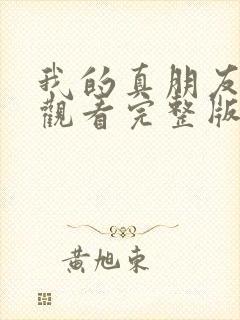 我的真朋友
觀看完整版
黃旭東